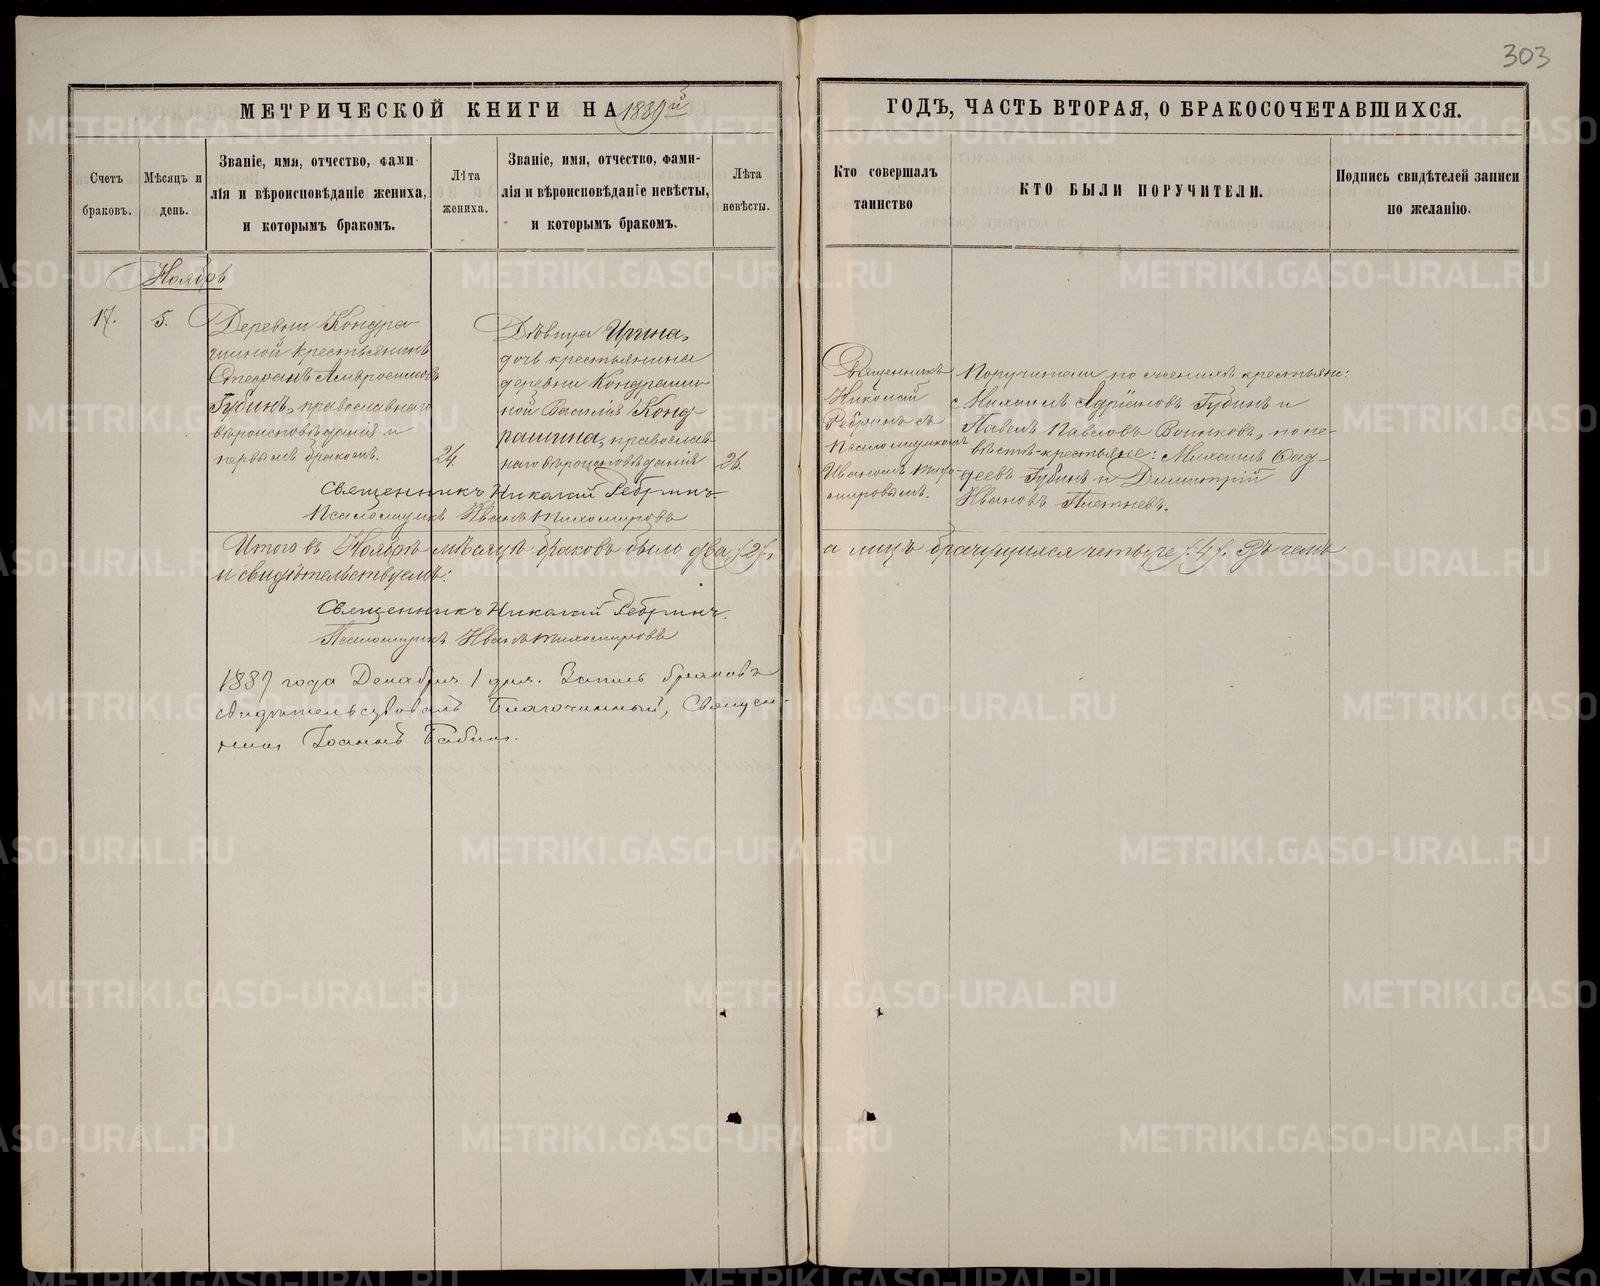 303
МЕТРИЧЕСКОЙ КНИГИ НА 1889й
ГОДЪ, ЧАСТЬ ВТОРАЯ, О БРАКОСОЧЕТАВШИХСЯ.
Счетъ браковъ.
Мѣсяцъ и день.
Званіе, имя, отчество, фами-
лія и вѣроисповѣданіе жениха,
и которымъ бракомъ.
Лѣта жениха.
Званіе, имя, отчество, фами-
лія и вѣроисповѣданіе невѣсты,
и которымъ бракомъ.
Лѣта невѣсты.
Кто совершалъ
таинство
КТО БЫЛИ ПОРУЧИТЕЛИ.
Подпись свидѣтелей записи
по желанію.
Ноябрь
17.
5.
Деревни Кондра-
шиной крестьянинъ
Стефанъ Амвросиевъ
Губинъ, православнаго
вѣроисповѣданія и
первымъ бракомъ.
24.
Дѣвица Ирина,
дочь крестьянина
деревни Кондраши-
ной Василія Конд-
рашина, православ-
наго вѣроисповѣданія
26.
Священникъ
Николай
Ребринъ съ
Псаломщикомъ
Иваномъ Тихо-
мировымъ.
Поручители по женихѣ крестьяне:
Михаилъ Адріановъ Губинъ и
Павелъ Павловъ Воинковъ, по не-
вѣстѣ-крестьяне: Михаилъ Фад-
деевъ Губинъ и Димитрій
Ивановъ Плетневъ.
Священникъ Николай Ребринъ
Псаломщикъ Иванъ Тихомировъ
Итого въ Ноябрѣ мѣсяцѣ браковъ было два /:2:/,
а лицъ брачущихся четыре /:4:/. Въ чемъ
и свидѣтельствуемъ:
Священникъ Николай Ребринъ.
Псаломщикъ Иванъ Тихомировъ
1889 года Декабря 1 дня. Запись браковъ
свидѣтельствовалъ Благочинный, Священ-
никъ Іоаннъ Бабинъ.
METRIKI.GASO-URAL.RU